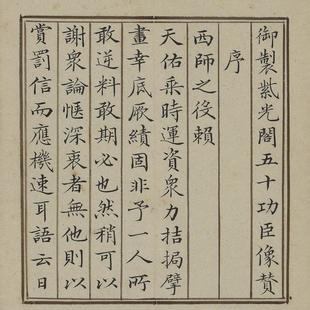 御製紫光閣五十功臣像賛
序
西師之役賴
天佑乘時運資衆力拮据擘
畫幸底厥績固非予一人所
敢逆料敢期必也然稍可以
謝衆論愜深衷者無他則以
賞罰信而應機速耳語云日